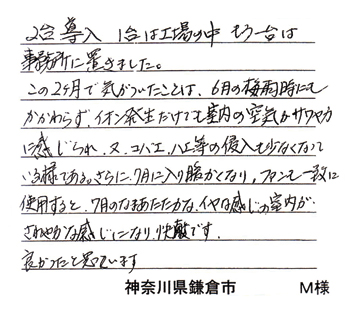 2台導入 1台は工場の中 もう一台は
事務所に置きました。
この2ヶ月で気がついたことは、6月の梅雨時にも
かかわらず、イオン発生だけでも室内の空気がサワヤカ
に感じられ、又、コバエ、ハエ等の侵入も少なくなって
いる様である。さらに、7月に入り暖かくなり、ファンも一致に
使用すると、7月のなまあたたかな、イヤな感じの室内が
さわやかな感じになり、快適です。
良かったと思っています
神奈川県鎌倉市 M様